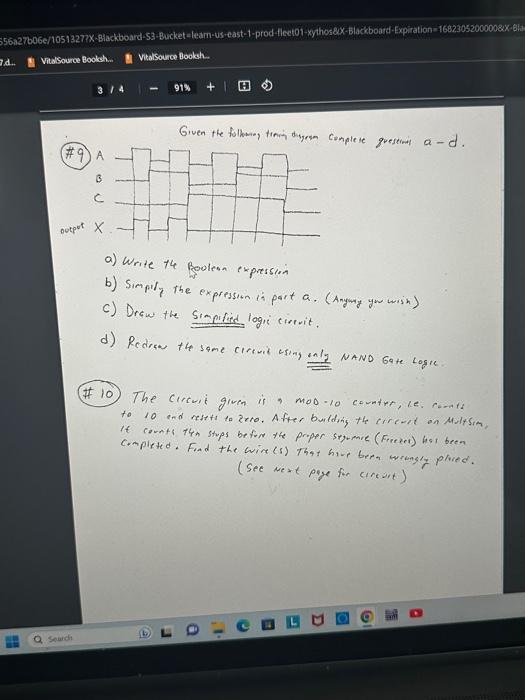 556a27b06e/1051327?X-Blackboard-S3-Bucket=learn-us-east-1-prod-fleet01-xythos&X-Blackboard-Expiration=1682305200000&X-Bla
?.d... VitalSource Booksh... VitalSource Booksh...
3 / 4 − 91% +
Given the following timing diagram Complete questions a-d.
#9 A
B
C
output X
a) Write the Boolean expression
b) Simpily the expression in part a. (Anyway you wish)
c) Draw the Simpified logic circuit.
d) Redraw the same circuit using only NAND Gate Logic.
#10 The circuit given is a MOD-10 counter, i.e. counts
to 10 and resets to zero. After building the circuit on MultSim,
it counts then stops before the proper sequence (Freezes) has been
Completed. Find the wire(s) That have been wrongly placed.
(See Next page for circuit)
Search